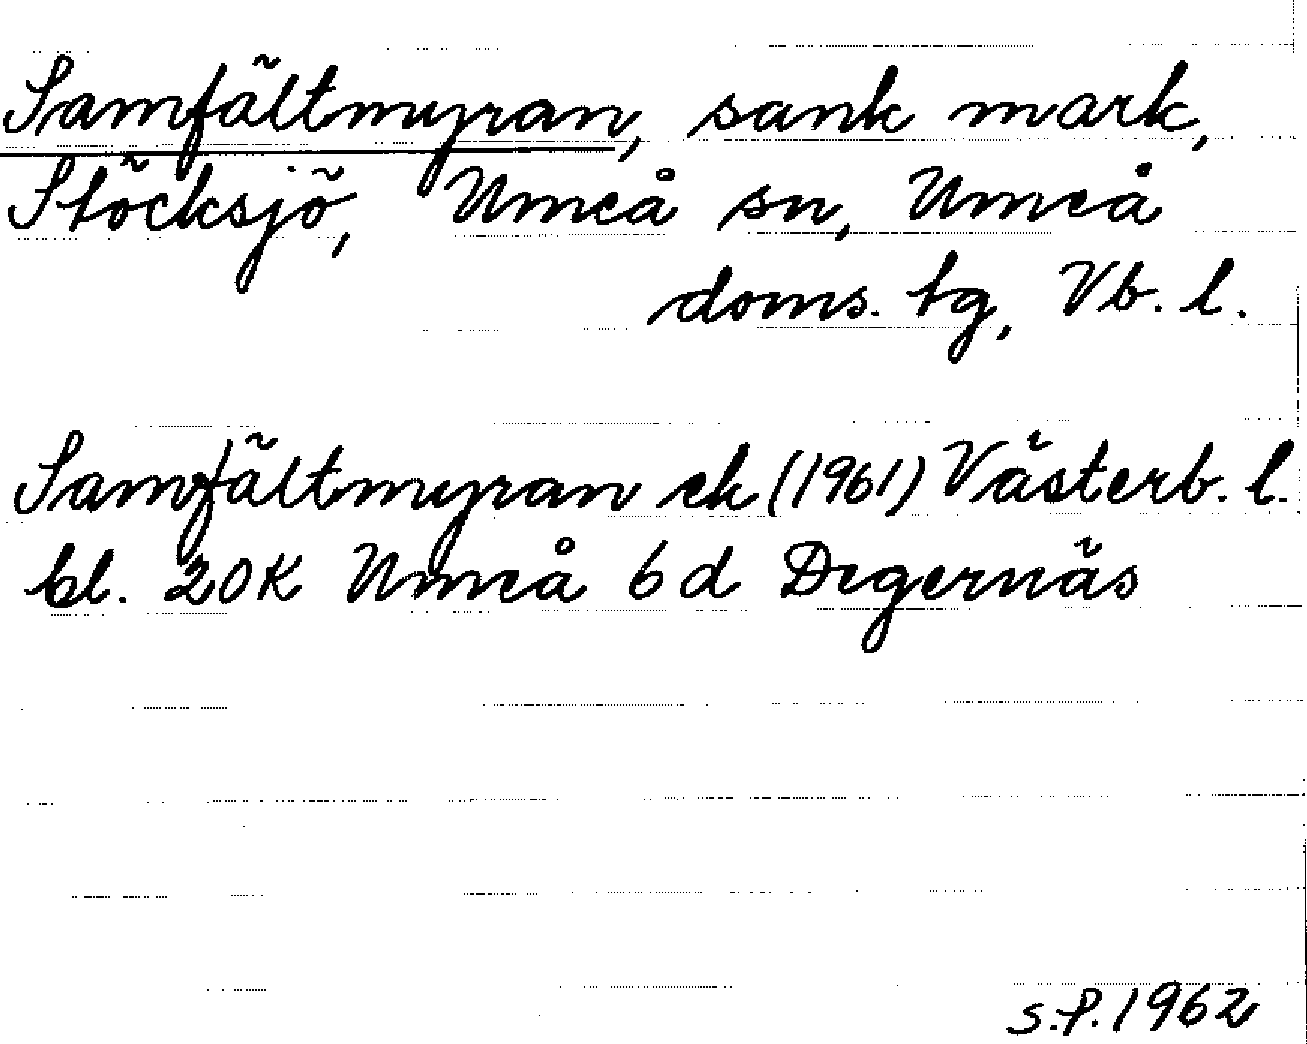 Samfältmyran, sank mark,
Stöcksjö, Umeå sn, Umeå
doms. tg, Vb. l.
Samfältmyran ek (1961) Västerb. l.
bl. 20K Umeå 6d Degernäs
S.P. 1962